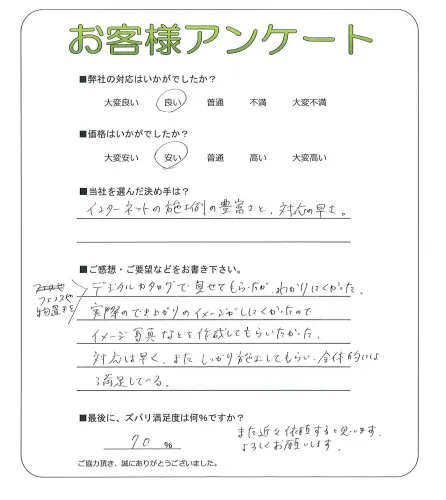 お客様アンケート
■弊社の対応はいかがでしたか？
大変良い 良い 普通 不満 大変不満
■価格はいかがでしたか？
大変安い 安い 普通 高い 大変高い
■当社を選んだ決め手は？
インターネットの施工例の豊富さと、対応の早さ。
■ご感想・ご要望などをお書き下さい。
フェンスや
物置きを
デジタルカタログで見せてもらったが、わかりにくかった。
実際のでき上がりのイメージがしにくかったので
イメージ写真などを作成してもらいたかった。
対応は早く、また しっかり施工してもらい、全体的には
満足している。
■最後に、ズバリ満足度は何％ですか？
70 ％
また近々依頼すると思います。
よろしくお願いします。
ご協力頂き、誠にありがとうございました。